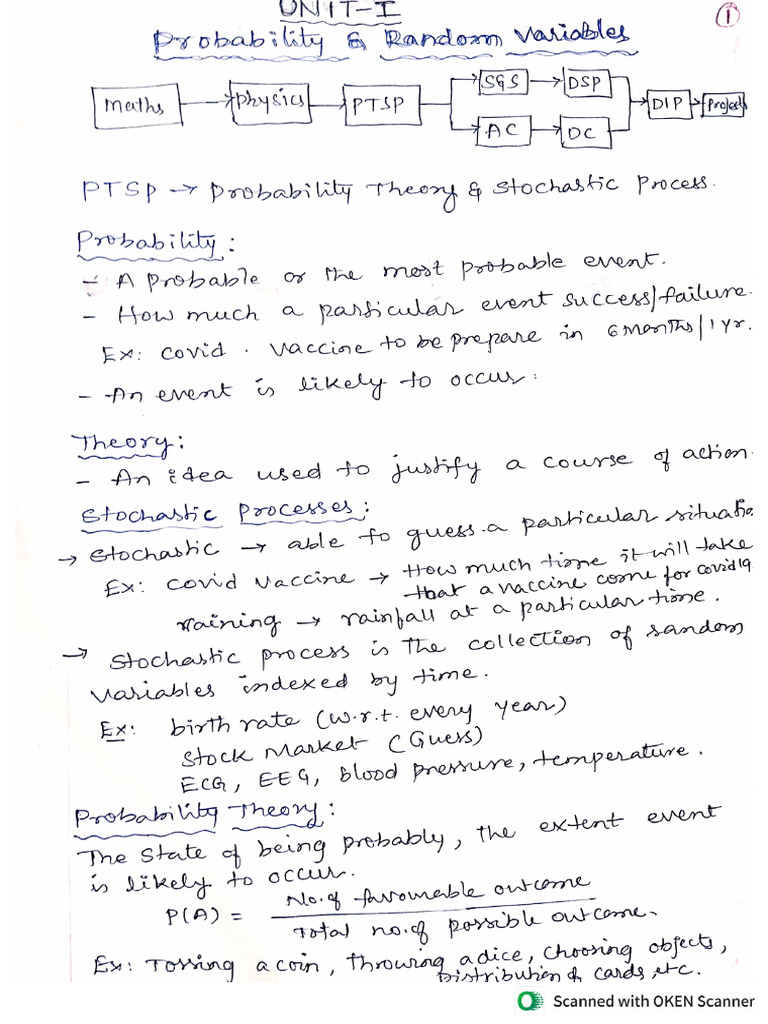 UNIT-I
①
Probability & Random Variables
Maths → Physics → PTSP → S&S → DSP → DIP → Projects
AC → DC
PTSP → Probability Theory & Stochastic Process.
Probability :
- A Probable or the most probable event.
- How much a particular event success/failure.
Ex: covid . vaccine to be prepare in 6 months/1yr.
- An event is likely to occur :
Theory :
- An idea used to justify a course of action.
Stochastic Processes :
→ Stochastic → able to guess a particular situatio
Ex: covid vaccine → How much time it will take
that a vaccine come for covid19
raining → rainfall at a particular time.
→ Stochastic process is the collection of random
variables indexed by time.
Ex: birth rate (w.r.t. every year)
Stock Market (Guess)
ECG, EEG, blood pressure, temperature.
Probability Theory :
The State of being probably, the extent event
is likely to occur.
P(A) = No. of favourable outcome / Total no. of possible outcome.
Ex: Tossing a coin, throwing a dice, choosing objects,
Distribution of cards, etc.
Scanned with OKEN Scanner